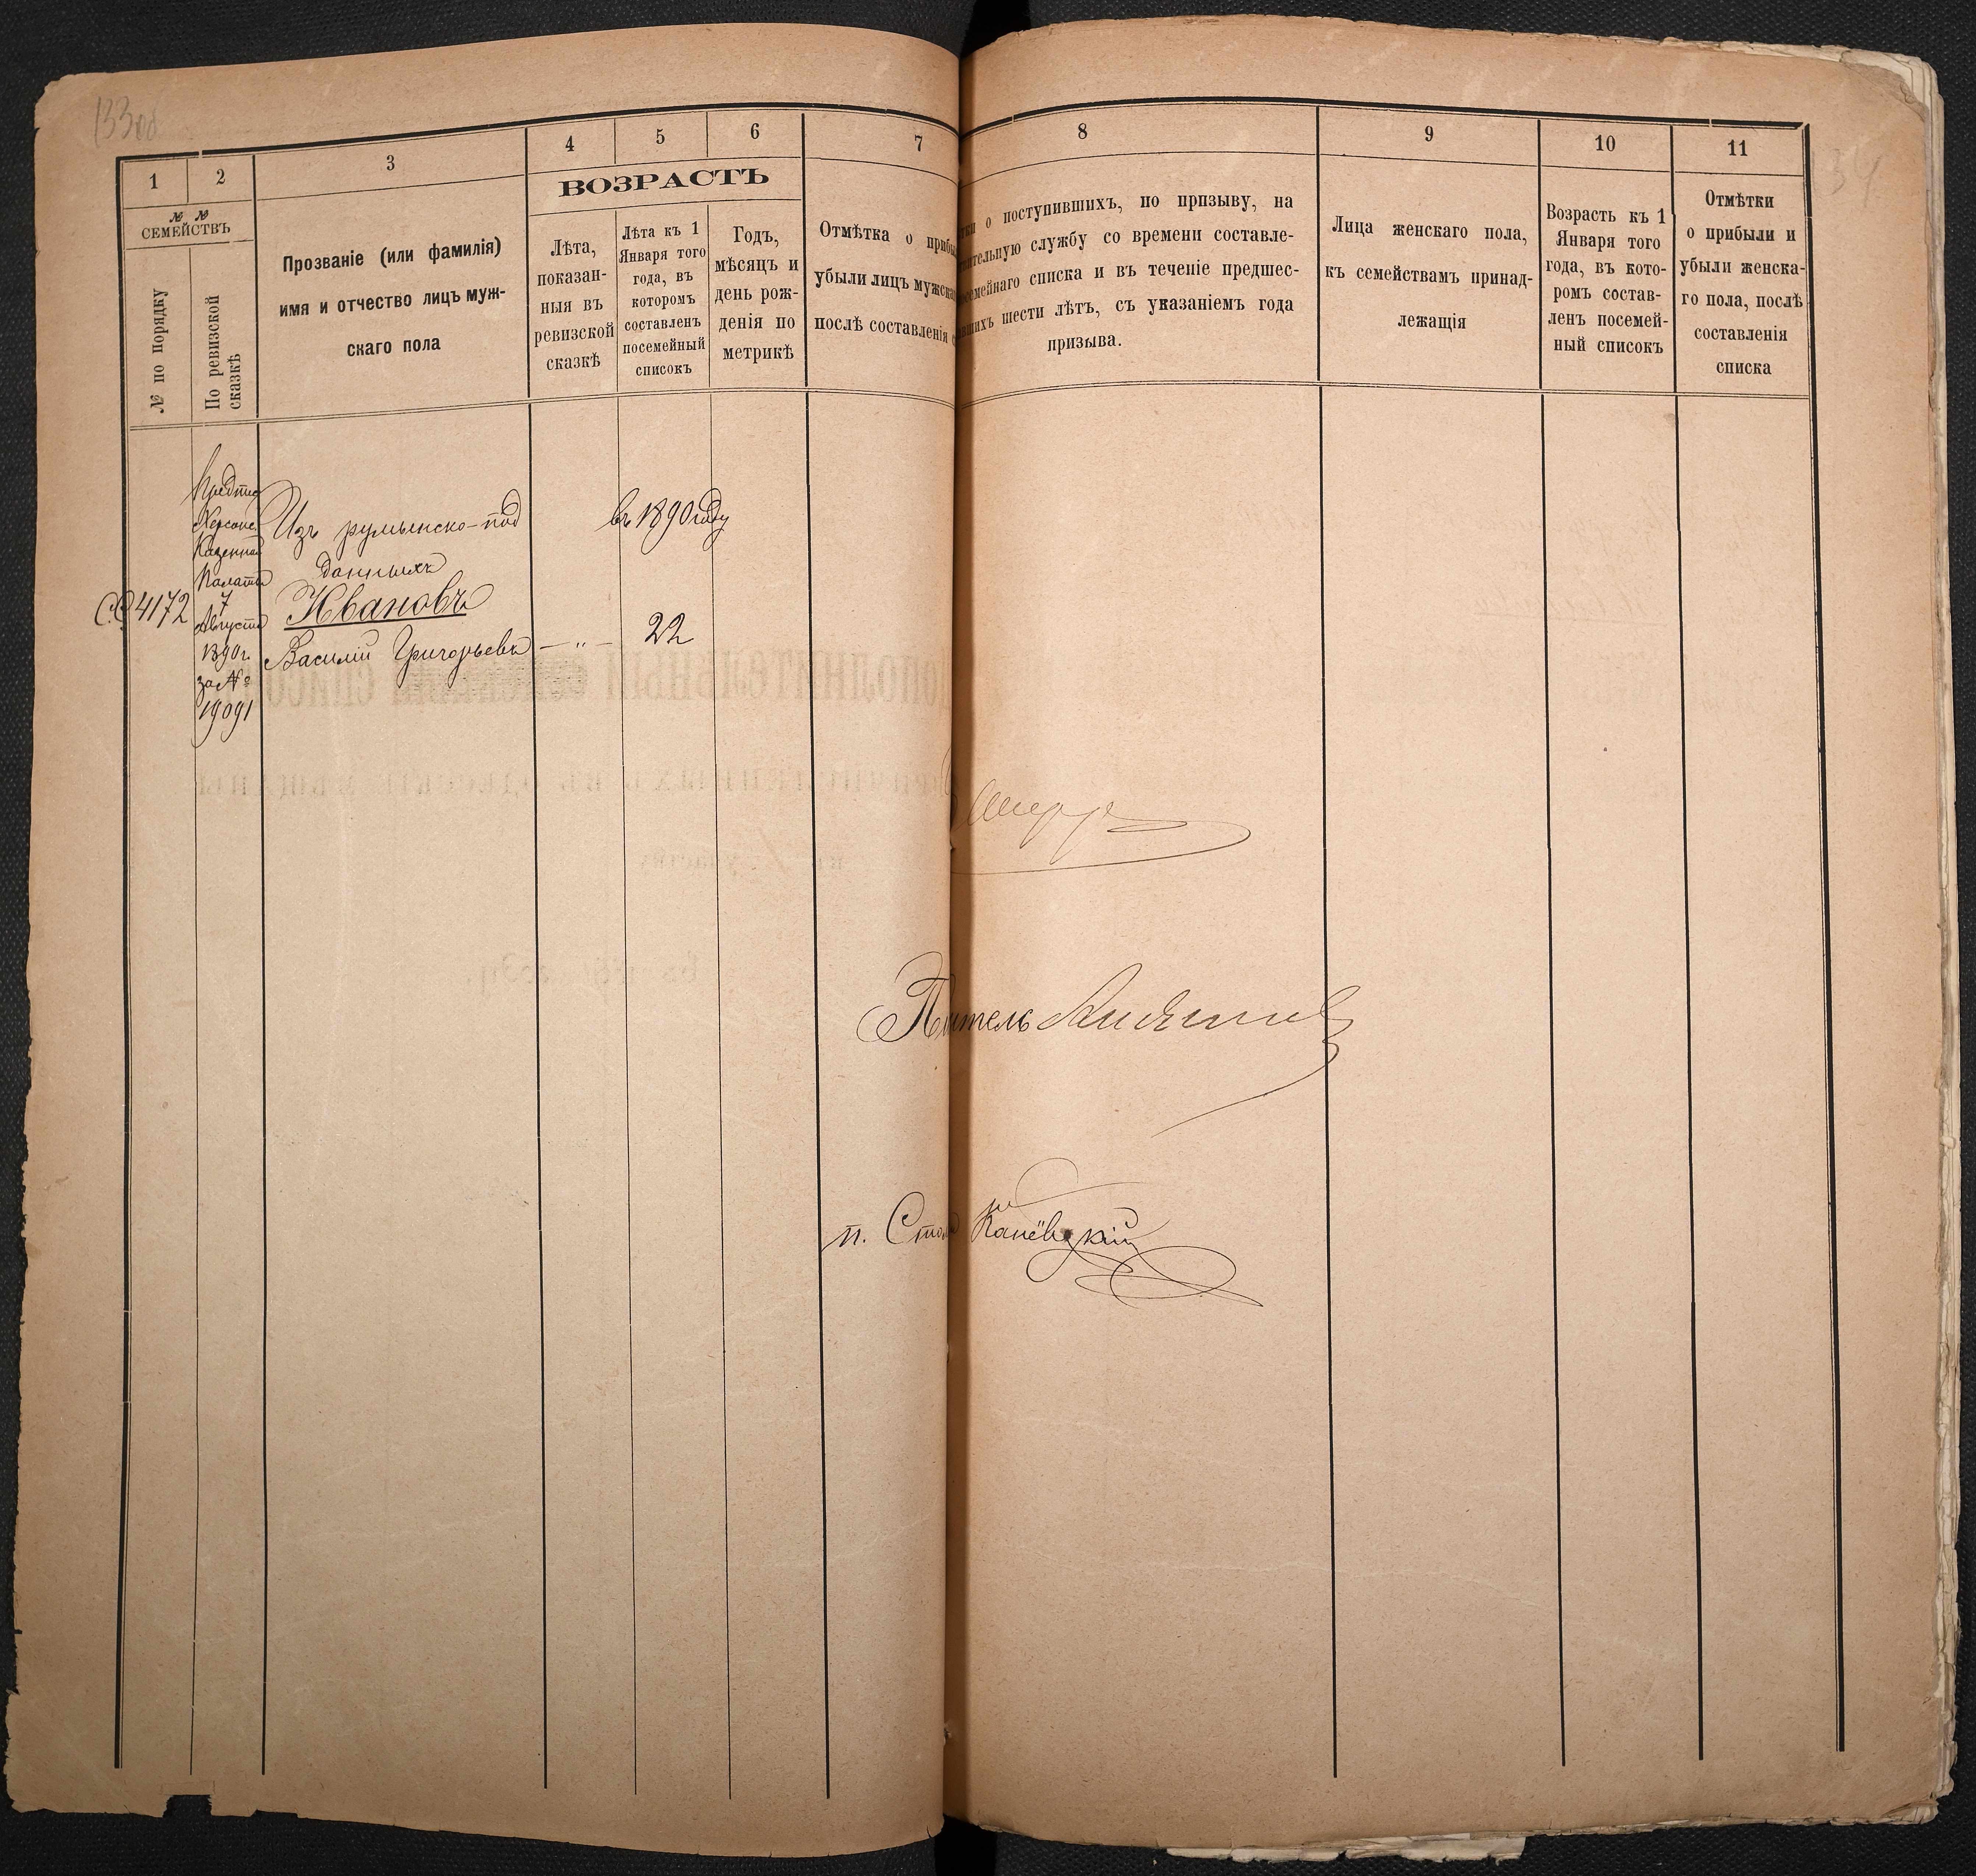 133об
134
1
2
3
4
5
6
7
8
9
10
11
№ №
СЕМЕЙСТВЪ
№ по порядку
По ревизской
сказкѣ
Прозваніе (или фамилія)
имя и отчество лицъ муж-
скаго пола
ВОЗРАСТЪ
Лѣта,
показан-
ныя въ
ревизской
сказкѣ
Лѣта къ 1
Января того
года, въ
которомъ
составленъ
посемейный
списокъ
Годъ,
мѣсяцъ и
день рож-
денія по
метрикѣ
Отмѣтка о прибы
убыли лицъ мужска
послѣ составленія с
ки о поступившихъ, по призыву, на
ительную службу со времени составле-
семейнаго списка и въ теченіе предшес-
авшихъ шести лѣтъ, съ указаніемъ года
призыва.
Лица женскаго пола,
къ семействамъ принад-
лежащія
Возрасть къ 1
Января того
года, въ кото-
ромъ состав-
ленъ посемей-
ный списокъ
Отмѣтки
о прибыли и
убыли женска-
го пола, послѣ
составленія
списка
4172
Предпис
Херсонс
Казенной
Палаты
7
Августа
1890 г.
за №
19091
Изъ румынско-под
данныхъ
Ивановъ
Василій Григорьевъ — „ —
въ 1890 году
22
п. Стол Каневцкій